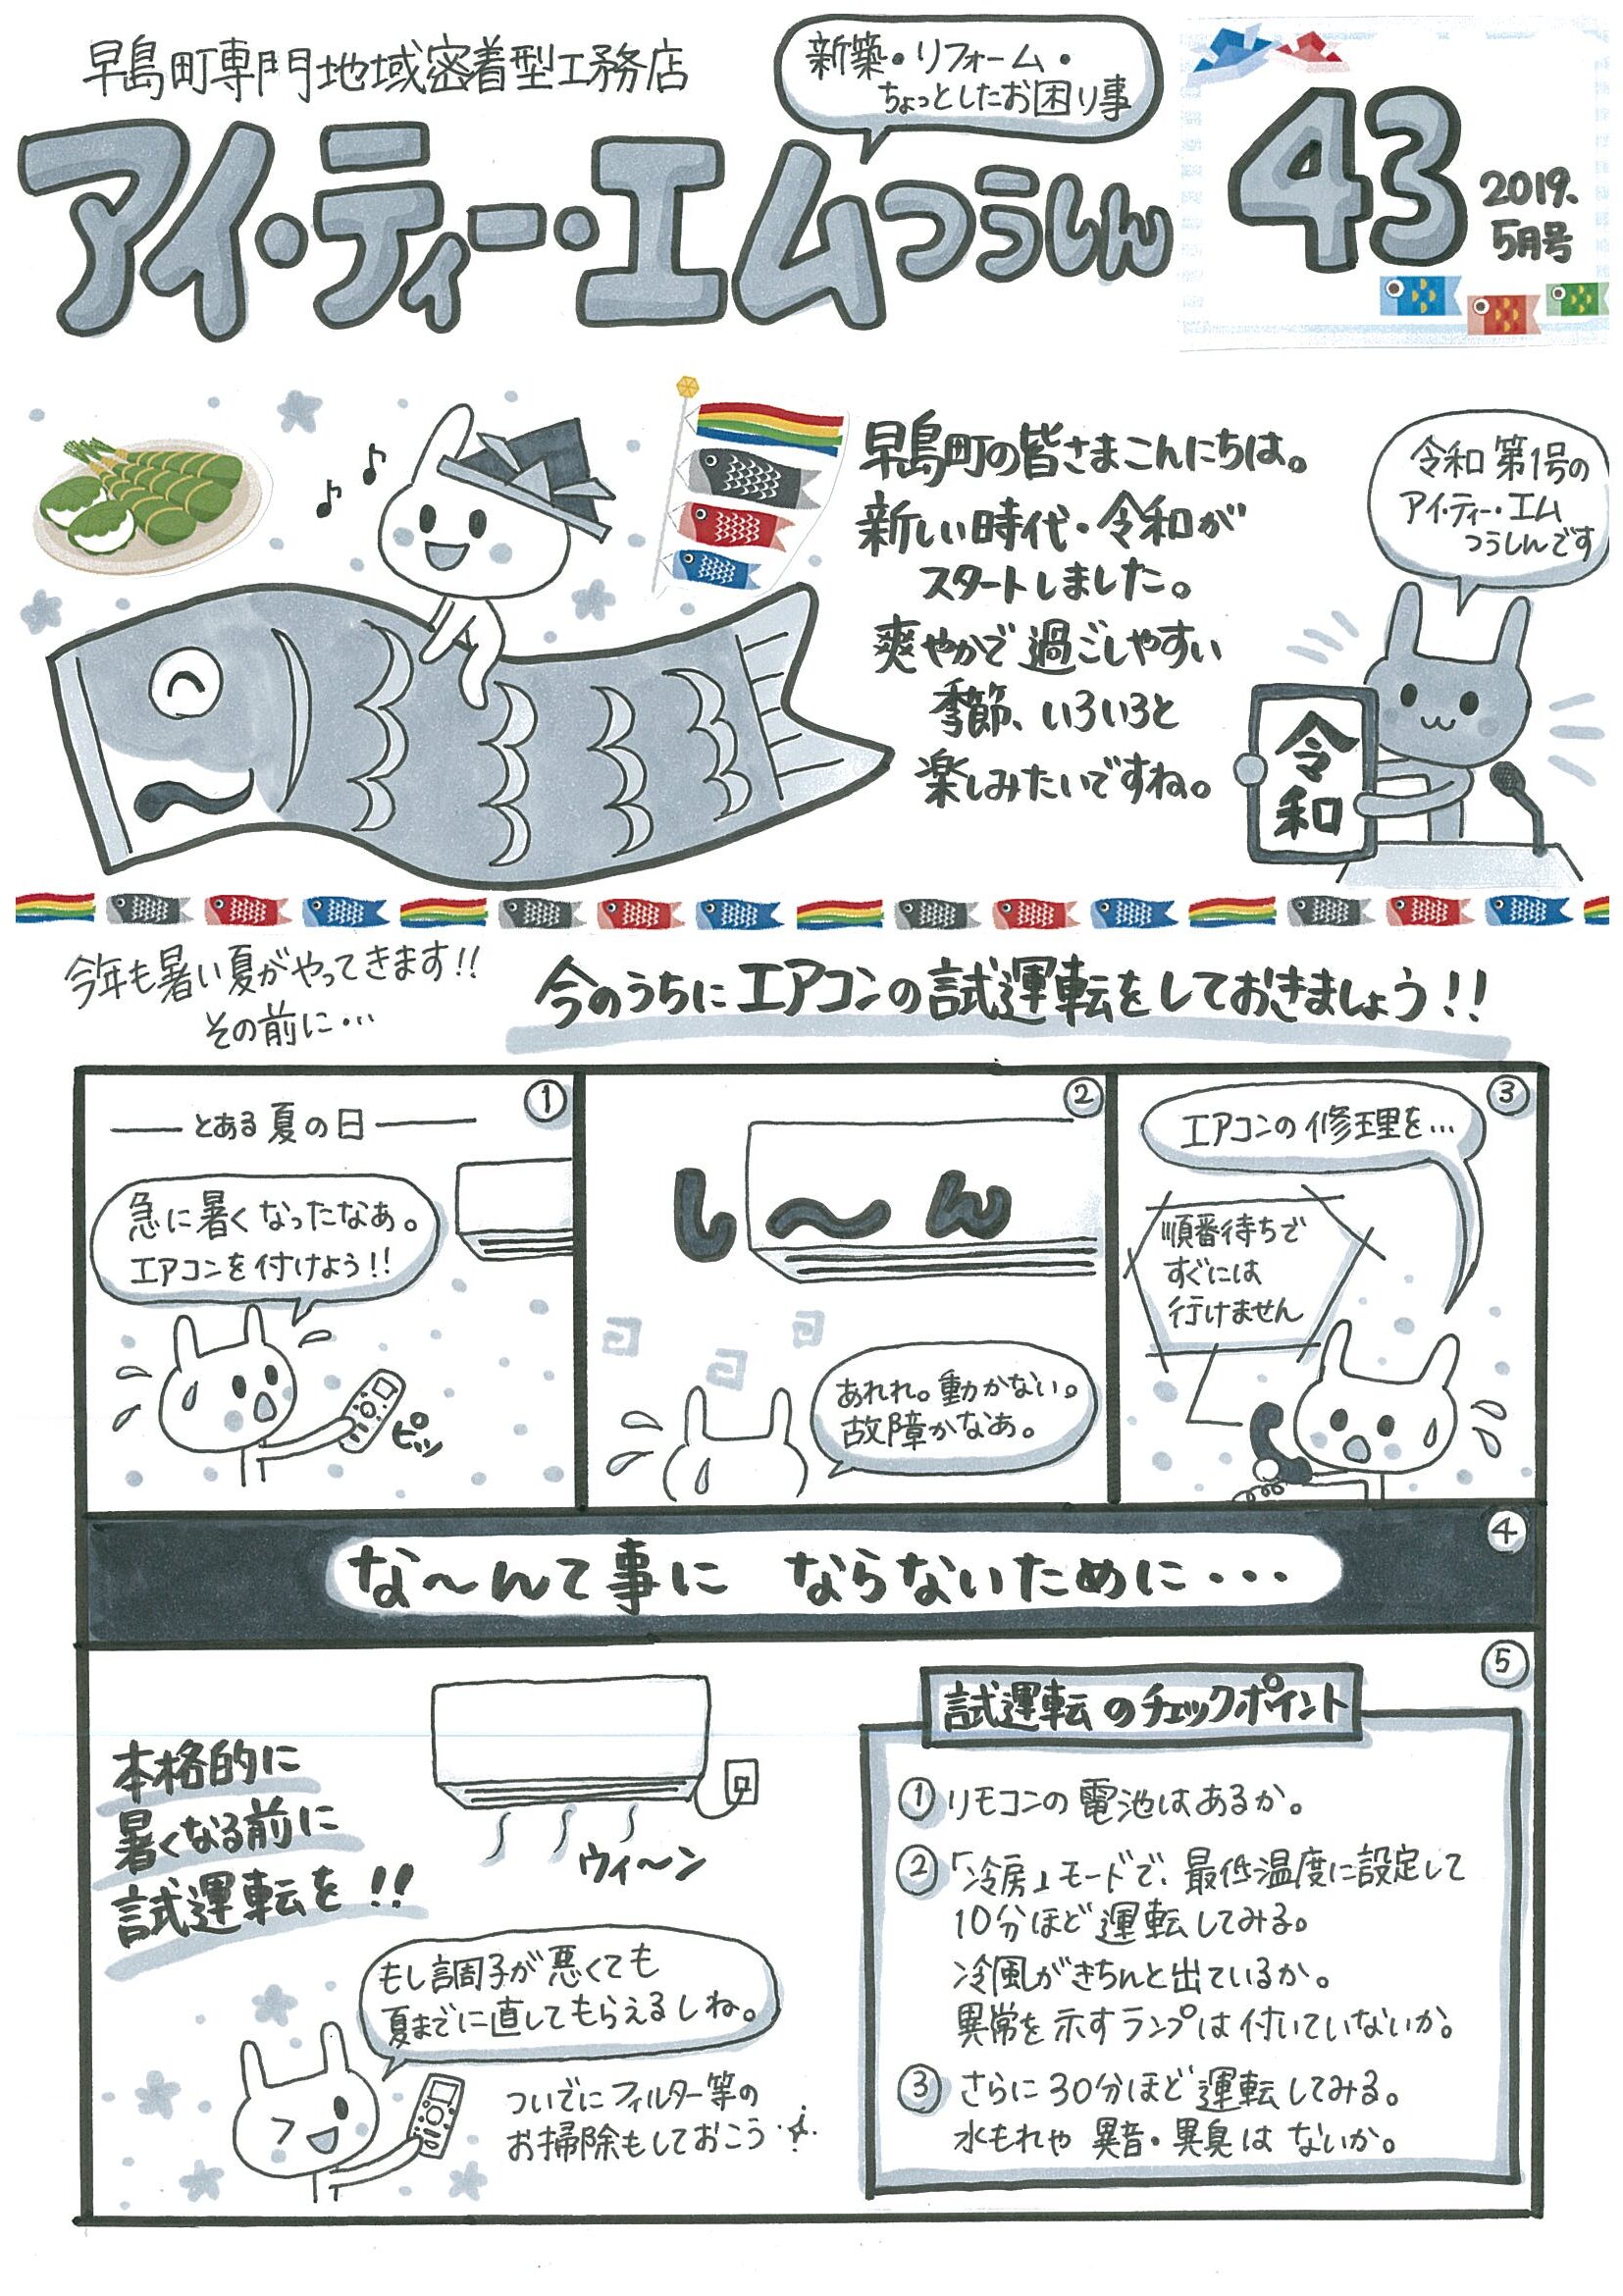 早島町専門地域密着型工務店
新築・リフォーム・
ちょっとしたお困り事
アイ・ティー・エムつうしん
43
2019.
5月号
早島町の皆さまこんにちは。
新しい時代・令和が
スタートしました。
爽やかで過ごしやすい
季節、いろいろと
楽しみたいですね。
令和 第1号の
アイ・ティー・エム
つうしんです
令和
今年も暑い夏がやってきます!!
その前に…
今のうちにエアコンの試運転をしておきましょう!!
①
とある夏の日
急に暑くなったなぁ。
エアコンを付けよう!!
ピッ
②
し〜ん
あれれ。動かない。
故障かなぁ。
③
エアコンの修理を…
順番待ちで
すぐには
行けません
④
な〜んて事に ならないために・・・
⑤
本格的に
暑くなる前に
試運転を!!
ウィ〜ン
もし調子が悪くても
夏までに直してもらえるしね。
ついでにフィルター等の
お掃除もしておこう
試運転のチェックポイント
① リモコンの電池はあるか。
② 「冷房」モードで、最低温度に設定して
10分ほど運転してみる。
冷風がきちんと出ているか。
異常を示すランプは付いていないか。
③ さらに30分ほど運転してみる。
水もれや異音・異臭はないか。